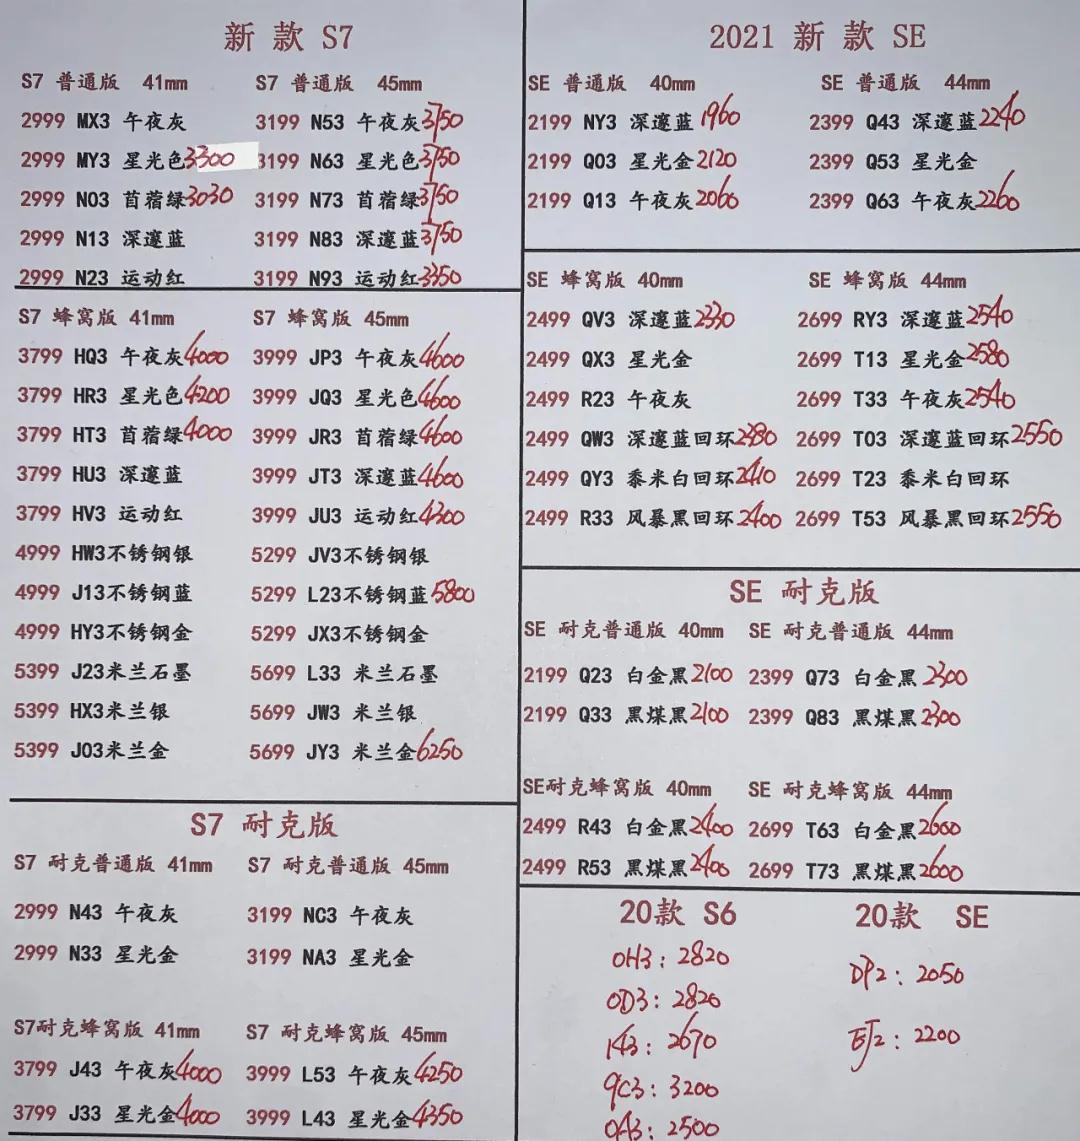 新 款 S7
S7 普通版 41mm S7 普通版 45mm
2999 MX3 午夜灰 3199 N53 午夜灰3750
2999 MY3 星光色3300 3199 N63 星光色3750
2999 N03 首蓿绿3030 3199 N73 首蓿绿3750
2999 N13 深邃蓝 3199 N83 深邃蓝3750
2999 N23 运动红 3199 N93 运动红3350
S7 蜂窝版 41mm S7 蜂窝版 45mm
3799 HQ3 午夜灰4000 3999 JP3 午夜灰4600
3799 HR3 星光色4200 3999 JQ3 星光色4600
3799 HT3 首蓿绿4000 3999 JR3 首蓿绿4600
3799 HU3 深邃蓝 3999 JT3 深邃蓝4600
3799 HV3 运动红 3999 JU3 运动红4300
4999 HW3不锈钢银 5299 JV3不锈钢银
4999 J13不锈钢蓝 5299 L23不锈钢蓝5800
4999 HY3不锈钢金 5299 JX3不锈钢金
5399 J23米兰石墨 5699 L33 米兰石墨
5399 HX3米兰银 5699 JW3 米兰银
5399 J03米兰金 5699 JY3 米兰金6250
S7 耐克版
S7 耐克普通版 41mm S7 耐克普通版 45mm
2999 N43 午夜灰 3199 NC3 午夜灰
2999 N33 星光金 3199 NA3 星光金
S7耐克蜂窝版 41mm S7 耐克蜂窝版 45mm
3799 J43 午夜灰4000 3999 L53 午夜灰4250
3799 J33 星光金4000 3999 L43 星光金4350
2021 新 款 SE
SE 普通版 40mm SE 普通版 44mm
2199 NY3 深邃蓝1960 2399 Q43 深邃蓝2240
2199 Q03 星光金2120 2399 Q53 星光金
2199 Q13 午夜灰2060 2399 Q63 午夜灰2260
SE 蜂窝版 40mm SE 蜂窝版 44mm
2499 QV3 深邃蓝2330 2699 RY3 深邃蓝2540
2499 QX3 星光金 2699 T13 星光金2580
2499 R23 午夜灰 2699 T33 午夜灰2540
2499 QW3 深邃蓝回环 2699 T03 深邃蓝回环2550
2499 QY3 黍米白回环2410 2699 T23 黍米白回环
2499 R33 风暴黑回环2400 2699 T53 风暴黑回环2550
SE 耐克版
SE 耐克普通版 40mm SE 耐克普通版 44mm
2199 Q23 白金黑2100 2399 Q73 白金黑2300
2199 Q33 黑煤黑2100 2399 Q83 黑煤黑2300
SE耐克蜂窝版 40mm SE 耐克蜂窝版 44mm
2499 R43 白金黑2400 2699 T63 白金黑2600
2499 R53 黑煤黑2400 2699 T73 黑煤黑2600
20款 S6 20款 SE
0H3: 2820
DP2: 2050
0D3: 2820
2670
EJ2: 2200
9C3: 3200
0A3: 2500